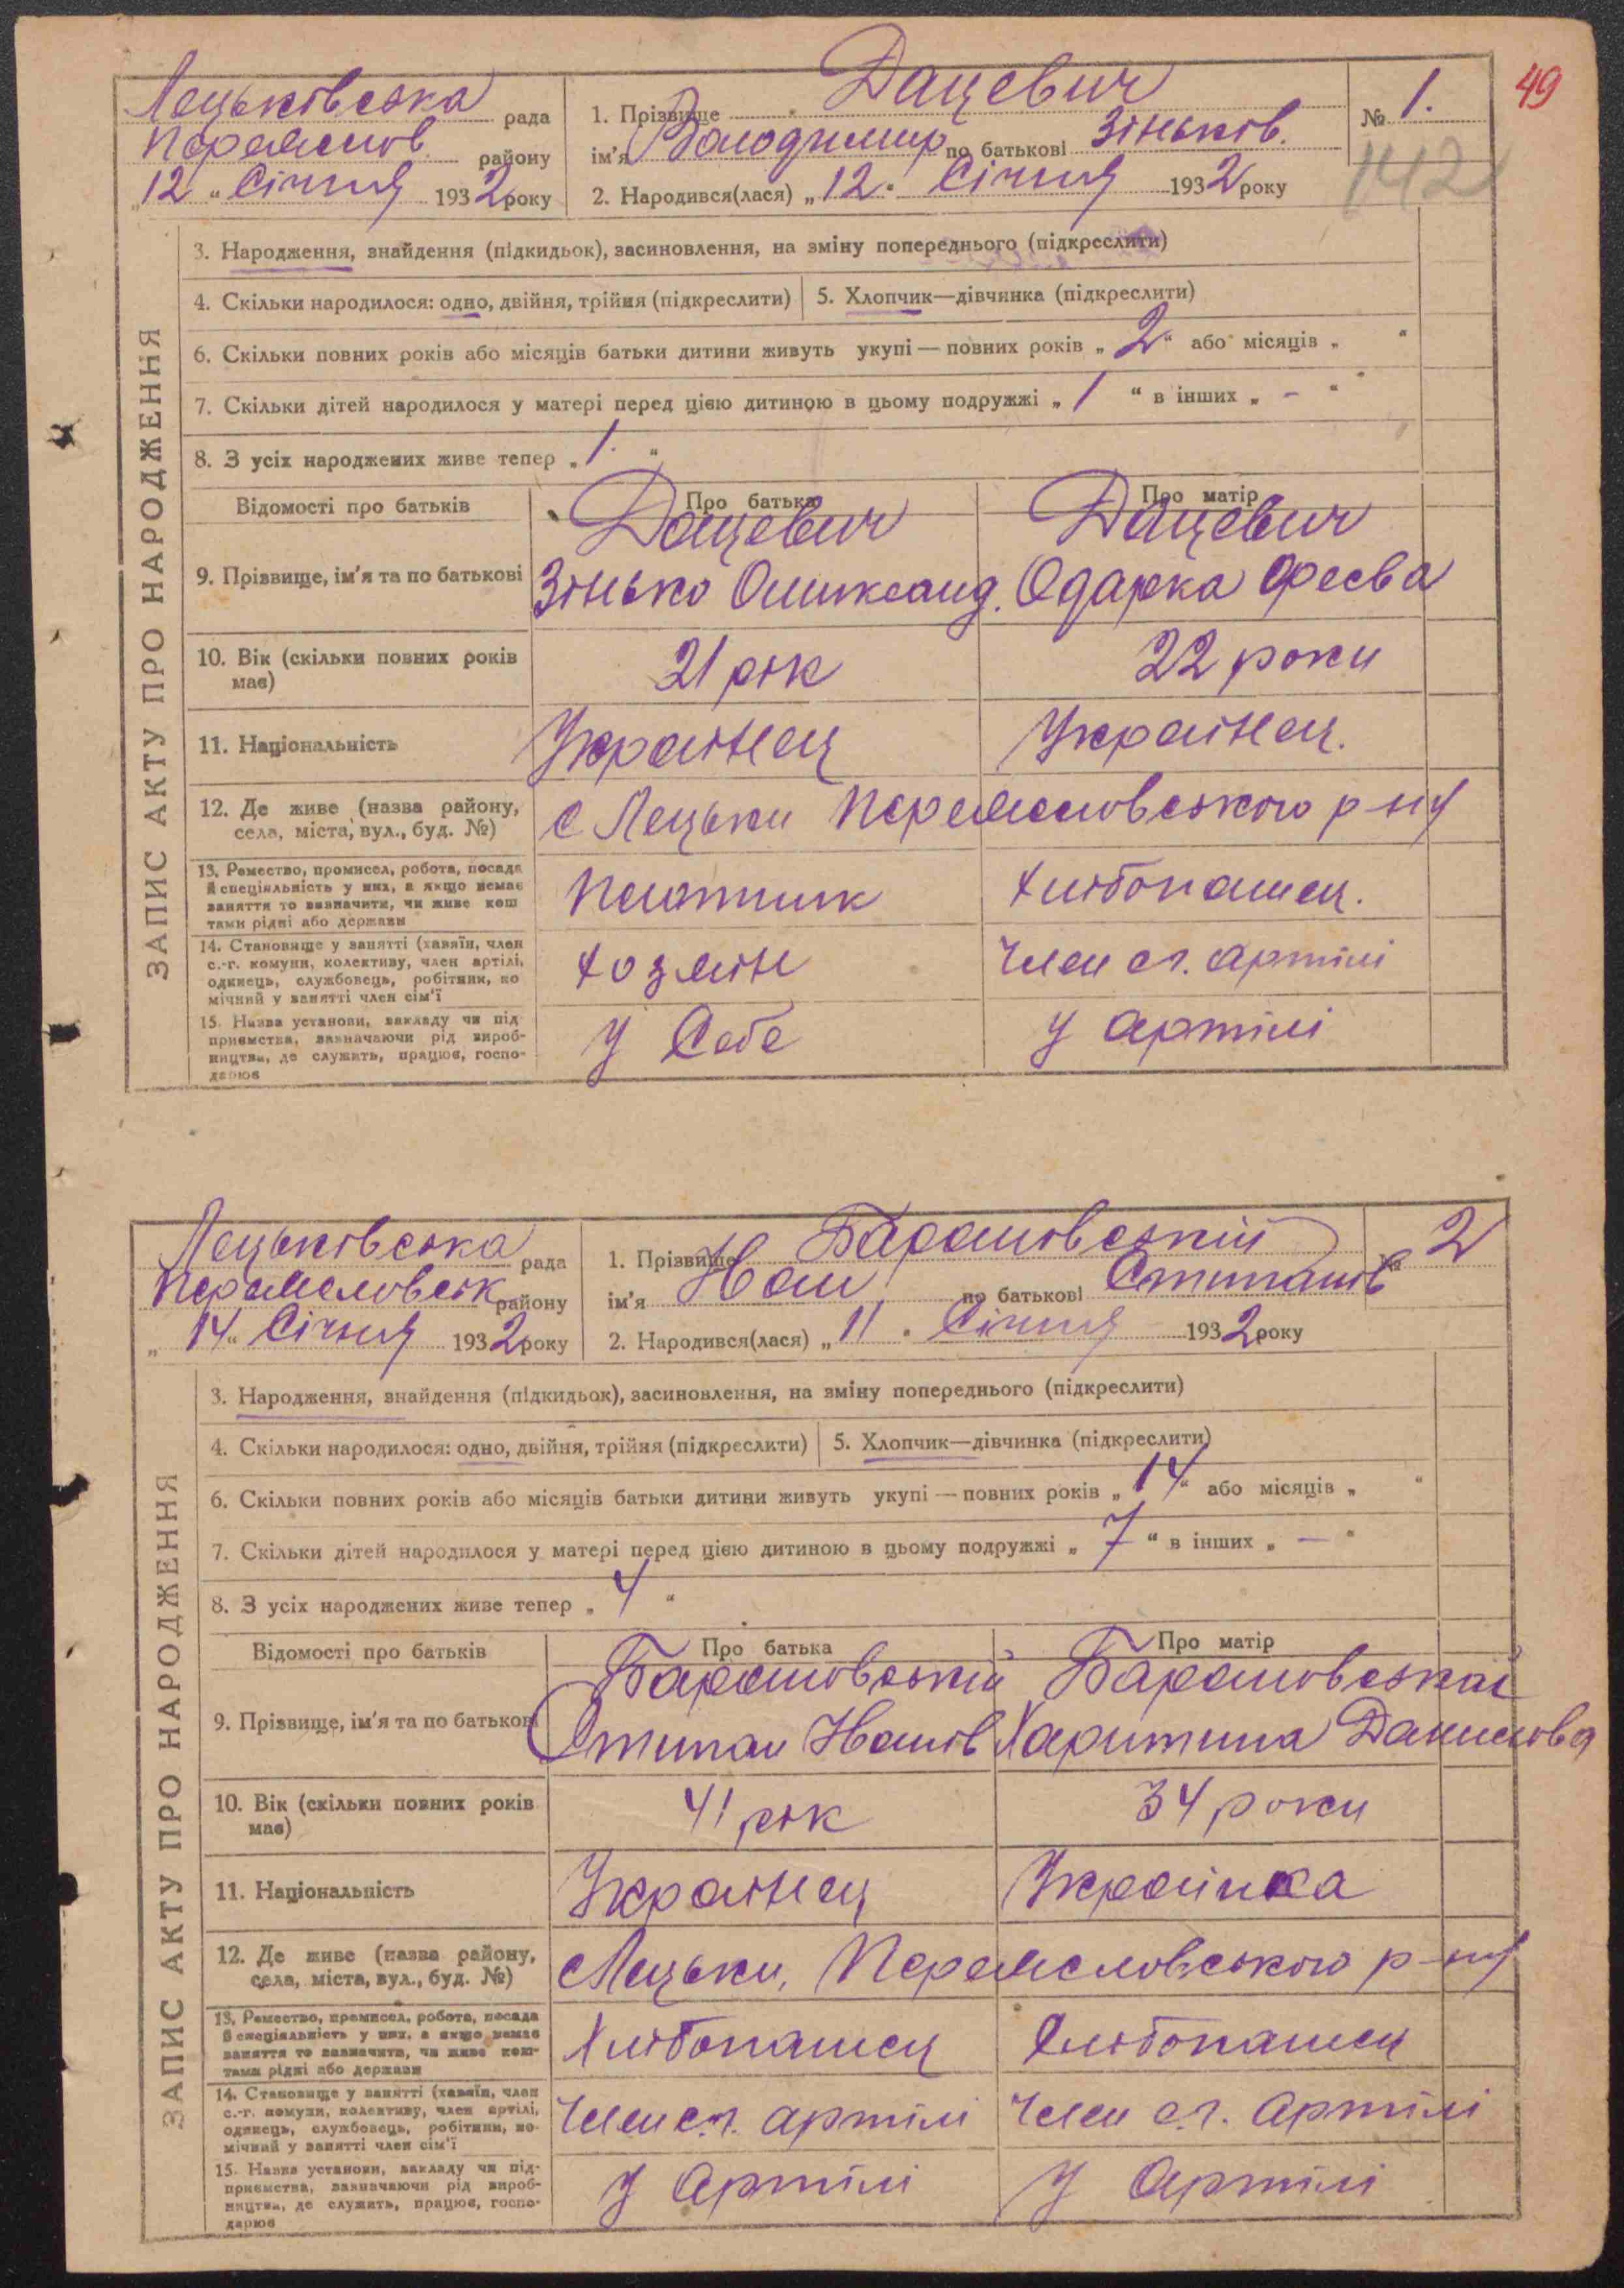 49
Лецьківська рада
Переяслов. району
„12“ Січня 1932 року
1. Прізвище Дацевич
ім'я Володимир по батькові Зіньков.
2. Народився(лася) „12“ Січня 1932 року
№ 1.
142
ЗАПИС АКТУ ПРО НАРОДЖЕННЯ
3. Народження, знайдення (підкидьок), засиновлення, на зміну попереднього (підкреслити)
4. Скільки народилося: одно, двійня, трійня (підкреслити) 5. Хлопчик—дівчинка (підкреслити)
6. Скільки повних років або місяців батьки дитини живуть укупі — повних років „2“ або місяців „ “
7. Скільки дітей народилося у матері перед цією дитиною в цьому подружжі „1“ в інших „—“
8. З усіх народжених живе тепер „1.“
Відомості про батьків Про батька Про матір
Дацевич Дацевич
9. Прізвище, ім'я та по батькові Зінько Олександ. Одарка
10. Вік (скільки повних років 21 рік 22 роки
має)
11. Національність Украінец Украінец.
12. Де живе (назва району, с Лецьки Переясловського р-ну
села, міста, вул., буд. №)
13. Ремество, промисел, робота, посада
й спеціяльність у них, а якщо немає Плотник Хлібопашец.
заняття то визначити, чи живе кош
тами рідні або держави
14. Становище у занятті (хавяїн, член
с.-г. комуни, колективу, член артілі, Хозяін Член сг. артілі
одинець, службовець, робітник, по
мічний у занятті член сім'ї
15. Назва установи, закладу чи під
приємства, зазначаючи рід вироб- У Себе У артілі
ництва, де служить, працює, госпо-
дарює
Лецьківська рада
Переясловськ району
„14“ Січня 1932 року
1. Прізвище Барановський
ім'я Иван по батькові Стипанів
2. Народився(лася) „11“ Січня 1932 року
№ 2
ЗАПИС АКТУ ПРО НАРОДЖЕННЯ
3. Народження, знайдення (підкидьок), засиновлення, на зміну попереднього (підкреслити)
4. Скільки народилося: одно, двійня, трійня (підкреслити) 5. Хлопчик—дівчинка (підкреслити)
6. Скільки повних років або місяців батьки дитини живуть укупі — повних років „14“ або місяців „ “
7. Скільки дітей народилося у матері перед цією дитиною в цьому подружжі „7“ в інших „—“
8. З усіх народжених живе тепер „4“
Відомості про батьків Про батька Про матір
Барановський Барановськаі
9. Прізвище, ім'я та по батькові Стипан Иванів Харитина Данилова
10. Вік (скільки повних років 41 рік 34 роки
має)
11. Національність Украінец Украінка
12. Де живе (назва району, с Лецьки, Переясловського р-ну
села, міста, вул., буд. №)
13. Ремество, промисел, робота, посада
й спеціяльність у них, а якщо немає Хлібопашец Хлібопашец
заняття то зазначити, чи живе кош-
тами рідні або держави
14. Становище у занятті (хавяїн, член
с.-г. комуни, колективу, член артілі, Член с.г. артілі Член с.г. Артілі
одинець, службовець, робітник, по
мічний у занятті член сім'ї
15. Назва установи, закладу чи під-
приємства, зазначаючи рід вироб- У Артілі У Артілі
ництва, де служить, працює, госпо-
дарює